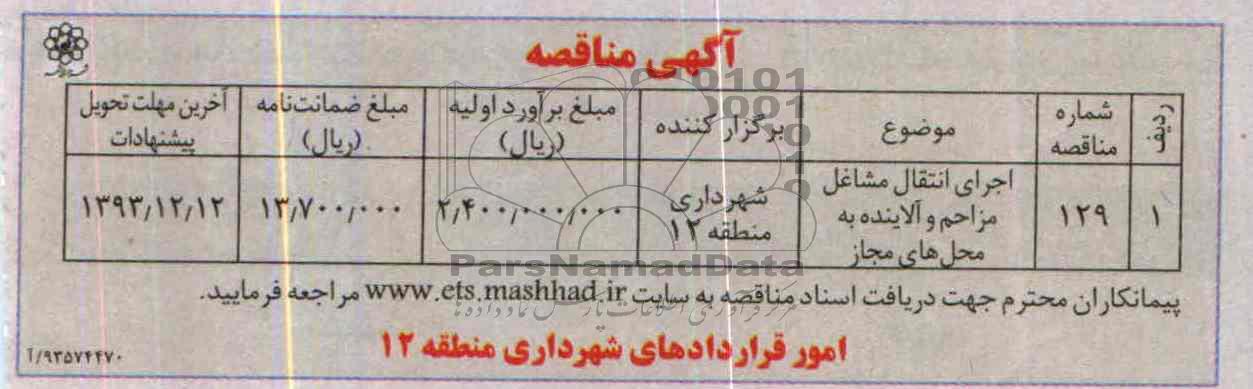 آگهی مناقصه
ردیف
شماره مناقصه
موضوع
برگزار کننده
مبلغ برآورد اولیه (ریال)
مبلغ ضمانت‌نامه (ریال)
آخرین مهلت تحویل پیشنهادات
۱
۱۲۹
اجرای انتقال مشاغل
مزاحم و آلاینده به
محل‌های مجاز
شهرداری
منطقه ۱۲
۲٫۴۰۰٫۰۰۰٫۰۰۰
۱۳٫۷۰۰٫۰۰۰
۱۳۹۳٫۱۲٫۱۲
ParsNamadData
پیمانکاران محترم جهت دریافت اسناد مناقصه به سایت www.ets.mashhad.ir مراجعه فرمایید.
امور قراردادهای شهرداری منطقه ۱۲
۹۳۵۷۴۴۷۰/آ